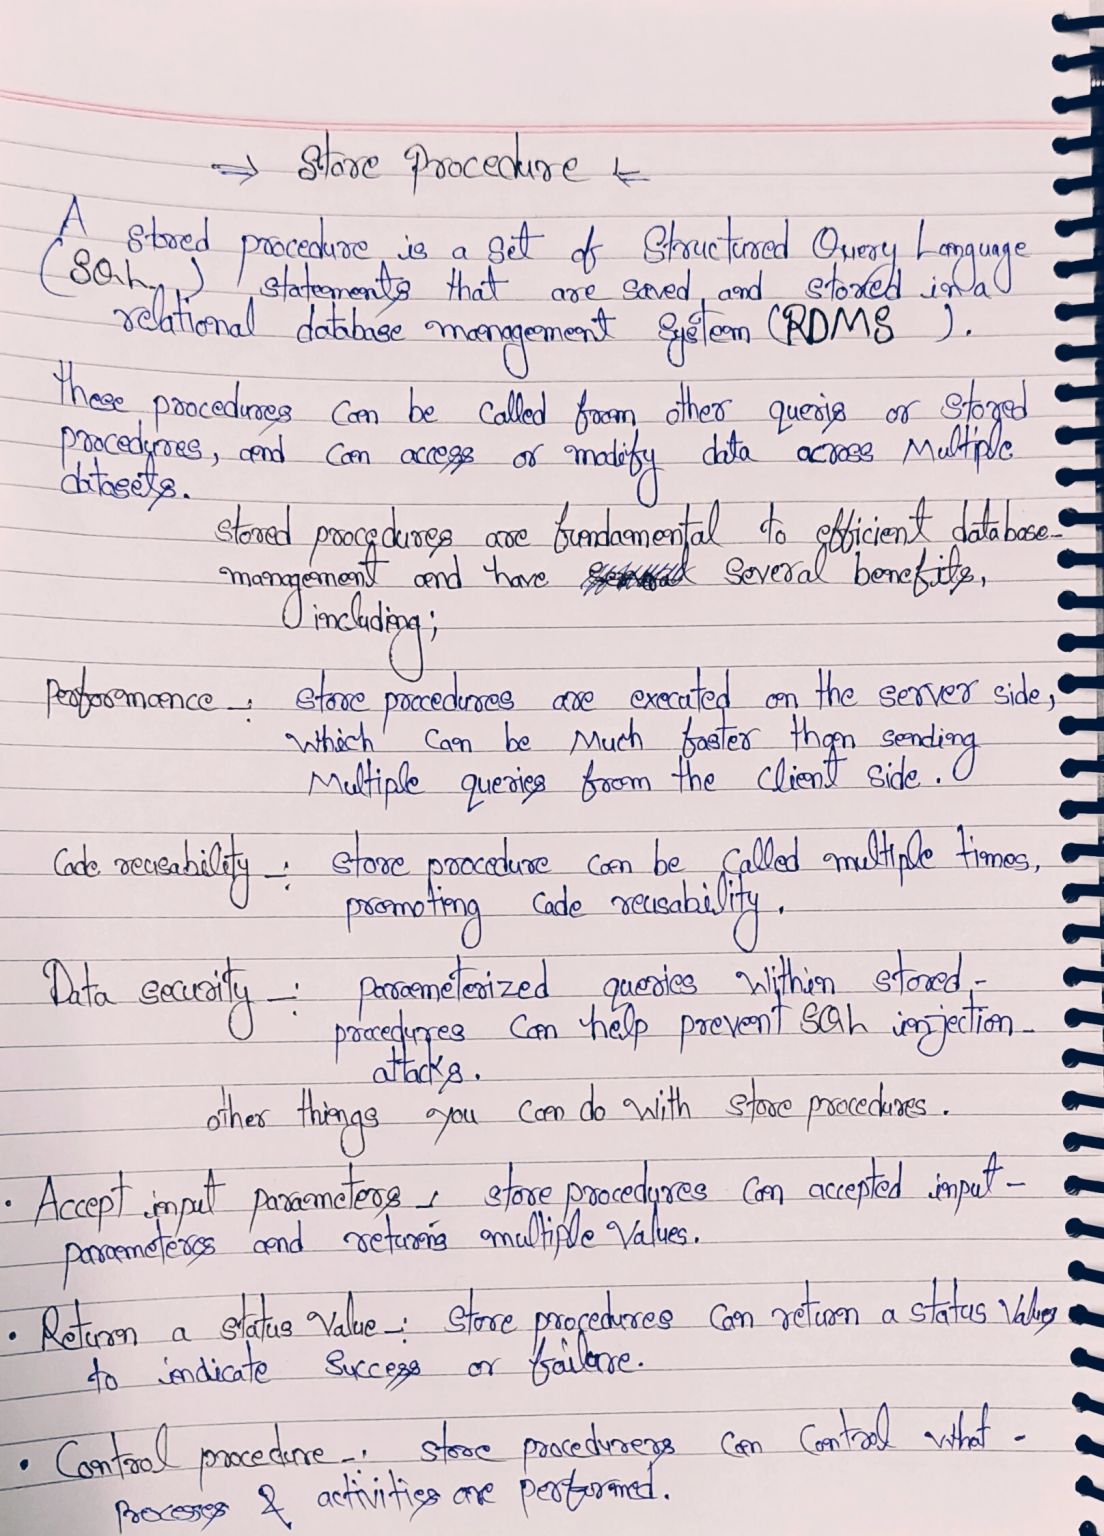 ⇒ Store Procedure ⇐
A stored procedure is a set of Structured Query Language
(SQL) statements that are saved and stored in a
relational database management system (RDMS ).
These procedures can be called from other queris or stored
procedures, and can access or modify data across Multiple
datasets.
stored procedures are fundamental to efficient database-
management and have several benefits,
including;
Performance -: store procedures are executed on the server side,
which can be Much faster than sending
Multiple queries from the client side.
Code reusability -: store procedure can be called multiple times,
promoting code reusability.
Data security -: parameterized queries within stored -
procedures can help prevent SQL injection -
attacks.
other things you can do with store procedures.
• Accept input parameters, store procedures can accepted input -
parameteres and returns multiple values.
• Return a status value -: store procedures can return a status values
to indicate success or failure.
• Control procedure -: store procedurers can control what -
Processes & activities are performed.